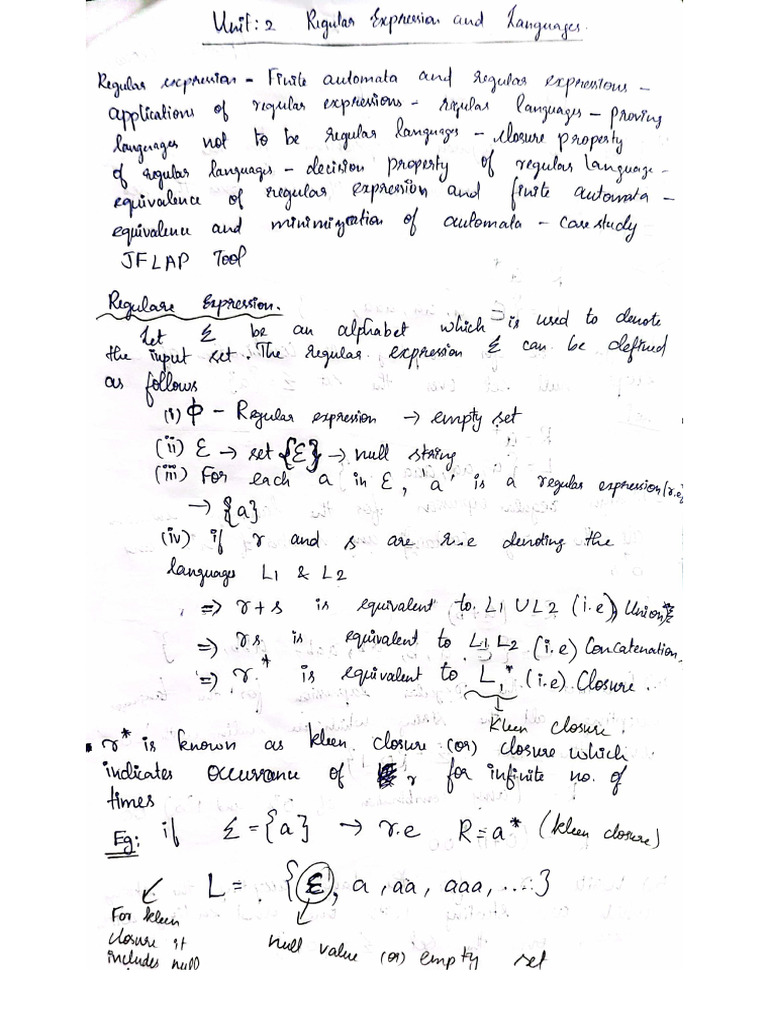 Unit: 2 Regular Expression and Languages.
Regular expression - Finite automata and regular expressions -
applications of regular expressions - regular languages - proving
languages not to be regular languages - closure property
of regular languages - decision property of regular language -
equivalence of regular expression and finite automata -
equivalence and minimization of automata - case study
JFLAP Tool
Regulare Expression.
Let Σ be an alphabet which is used to denote
the input set. The regular expression Σ can be defined
as follows
(i) Φ - Regular expression → empty set
(ii) Ɛ → set {Ɛ} → null string
(iii) For each 'a' in Ɛ, 'a' is a regular expression (r.e)
→ {a}
(iv) if r and s are r.e denoting the
languages L1 & L2
⇒ r+s is equivalent to L1 U L2 (i.e) Union
⇒ rs is equivalent to L1 L2 (i.e) Concatenation.
⇒ r.* is equivalent to L1* (i.e) Closure.
Kleen closure.
r* is known as kleen closure (or) closure which
indicates occurrance of r for infinite no. of
times
Eg: if Σ = {a} → r.e R = a* (kleen closure)
L = {Ɛ, a, aa, aaa, ....}
For kleen
closure it
includes null
null value (or) empty set